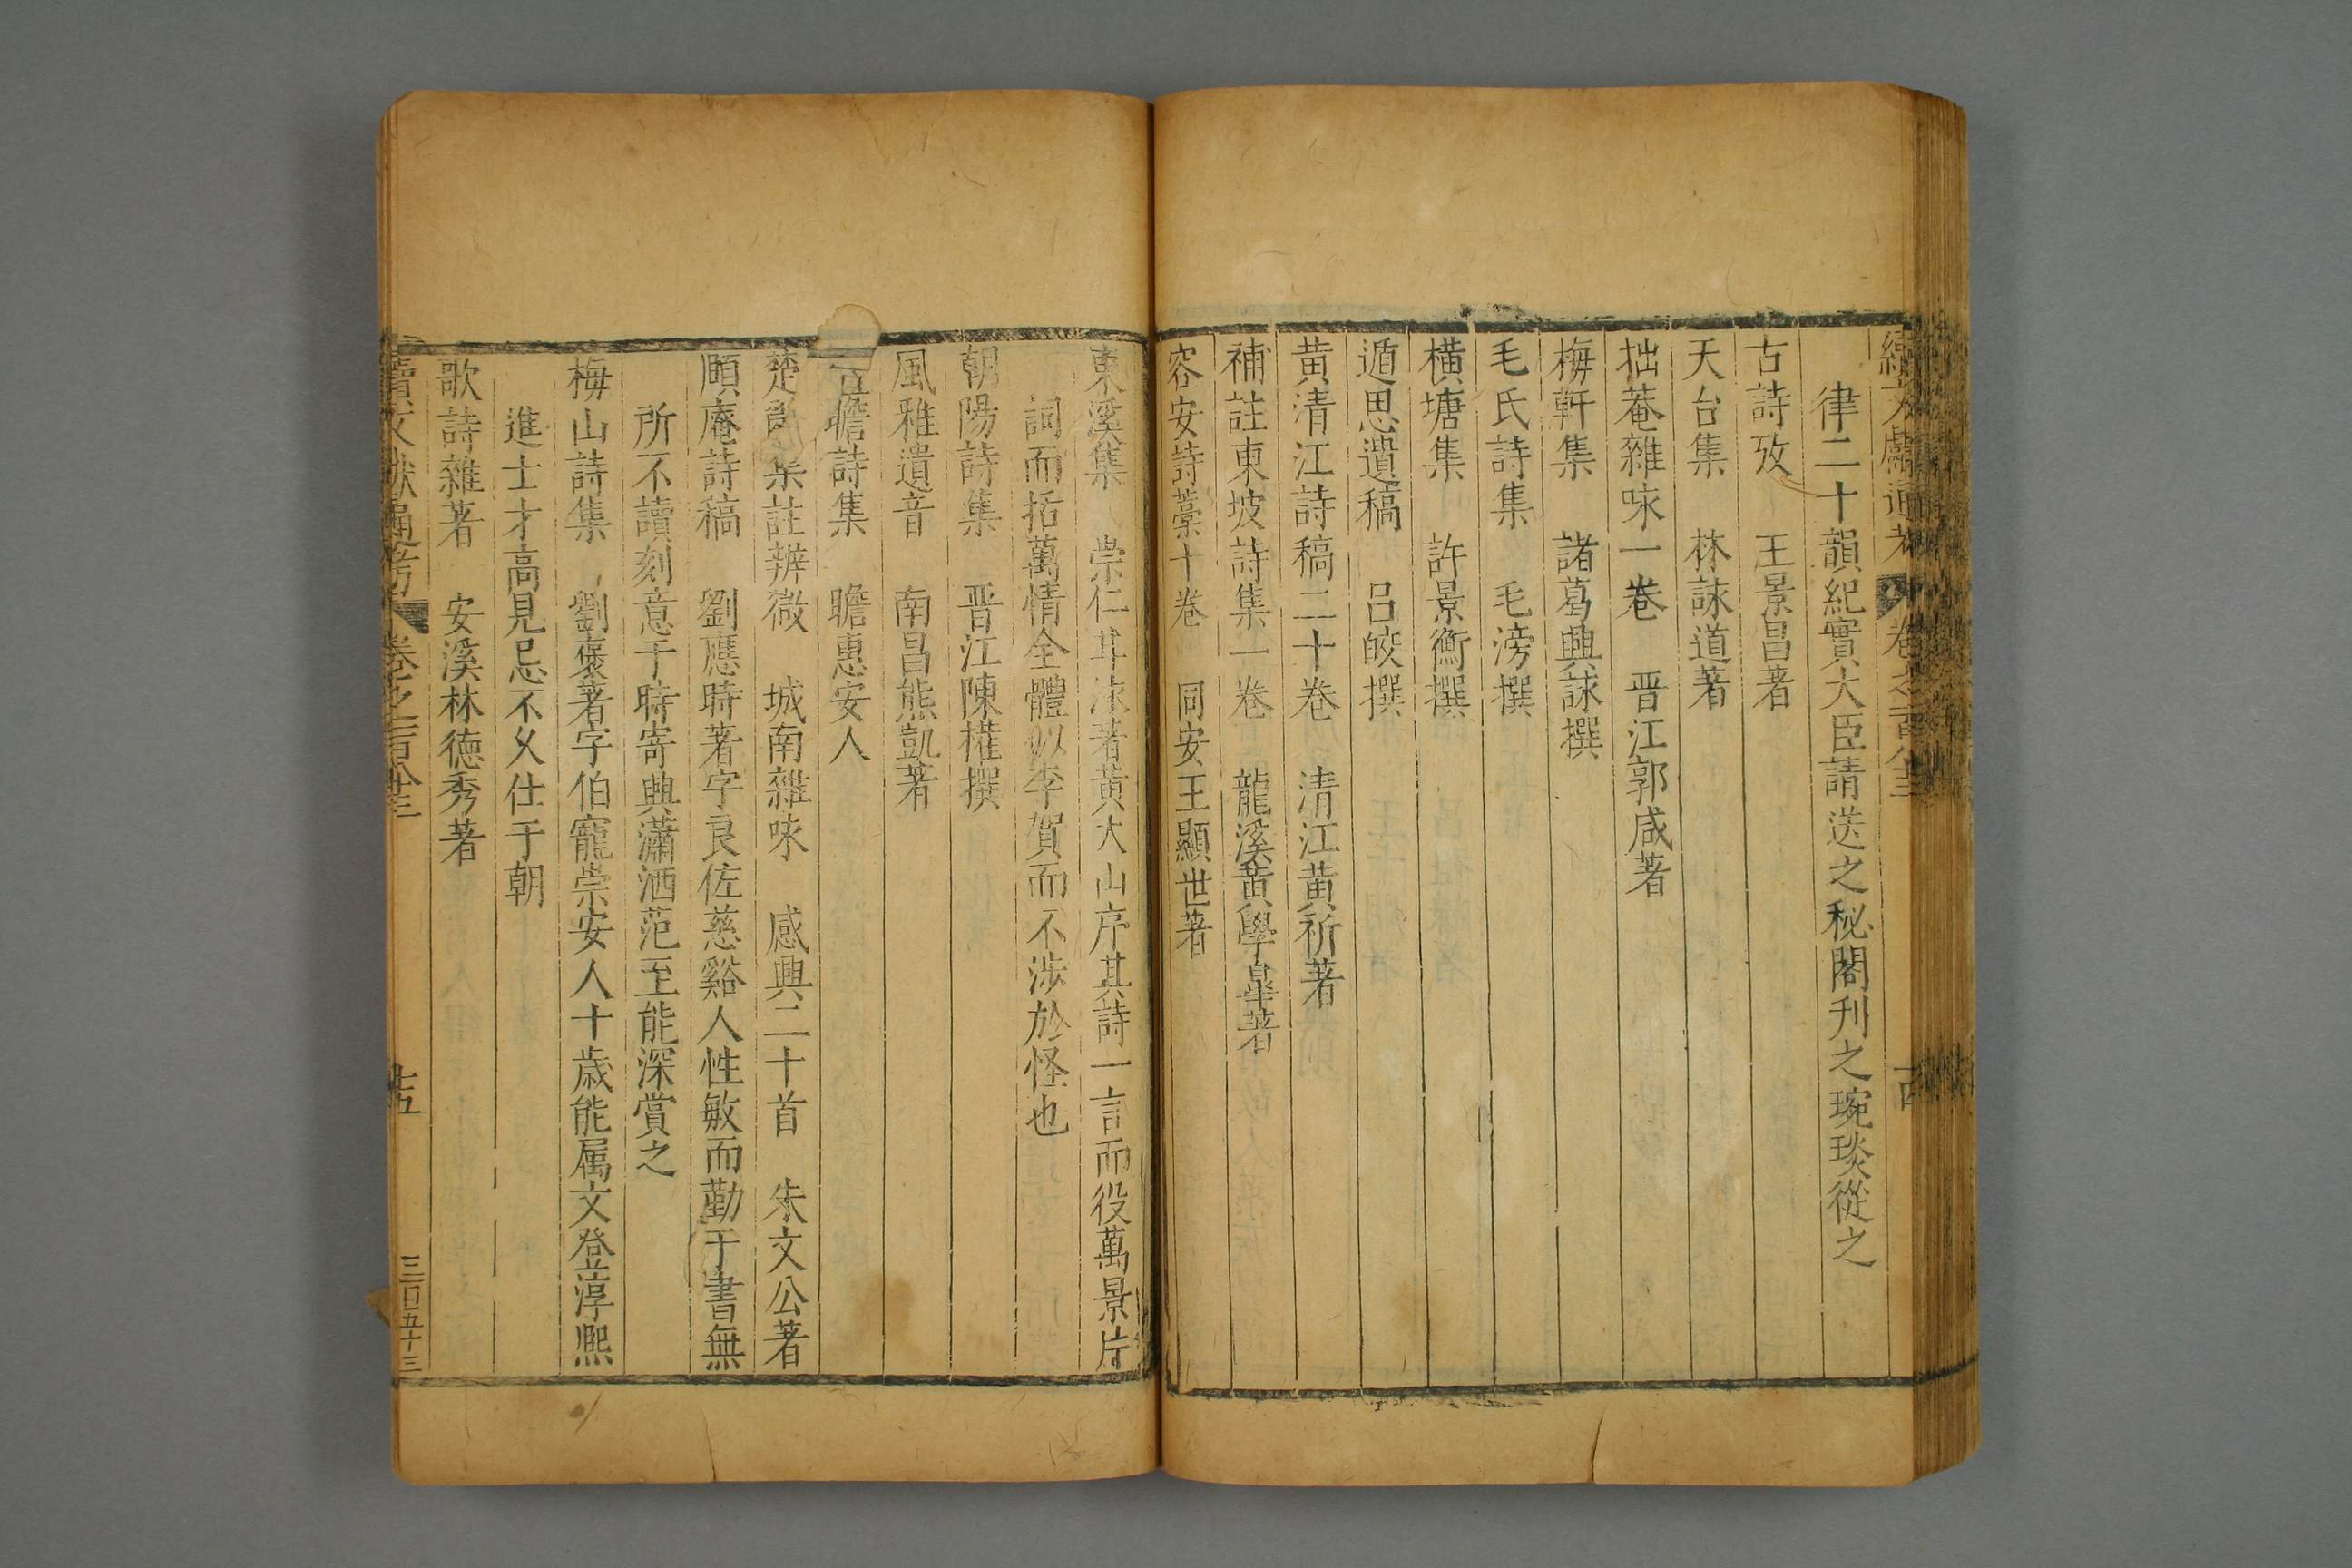 續文獻通考 卷之一百八十三 十四
律二十韻紀實大臣請送之秘閣刊之琬琰從之
古詩攷 王景昌著
天台集 林詠道著
拙菴雜咏一卷 晋江郭咸著
梅軒集 諸葛興詠撰
毛氏詩集 毛滂撰
橫塘集 許景衡撰
遁思遺稿 呂皎撰
黃清江詩稿二十卷 清江黃祈著
補註東坡詩集一卷 龍溪黃學皐著
容安詩藁十卷 同安王顯世著
東溪集 崇仁 著黃大山序其詩一言而役萬景片
詞而括萬情全體似李賀而不涉於怪也
朝陽詩集 晋江陳權撰
風雅遺音 南昌熊凱著
瞻詩集 瞻惠安人
楚 註辨微 城南雜咏 感興二十首 朱文公著
頤庵詩稿 劉應時著字良佐慈谿人性敏而勤于書無
所不讀刻意于時寄興瀟洒范至能深賞之
梅山詩集 劉褒著字伯寵崇安人十歲能属文登淳熙
進士才高見忌不久仕于朝
歌詩雜著 安溪林德秀著
續文獻通考 卷之一百八十三 十五 三百五十三